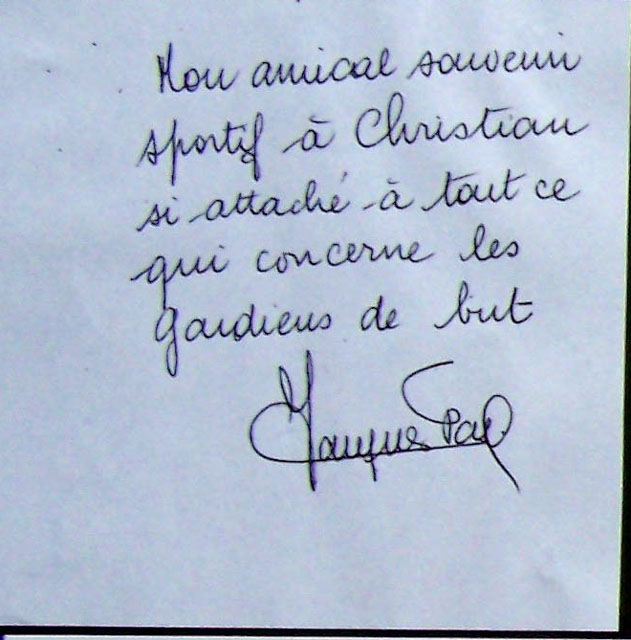 Mon amical souvenir
sportif à Christian
si attaché à tout ce
qui concerne les
gardiens de but
Jacques